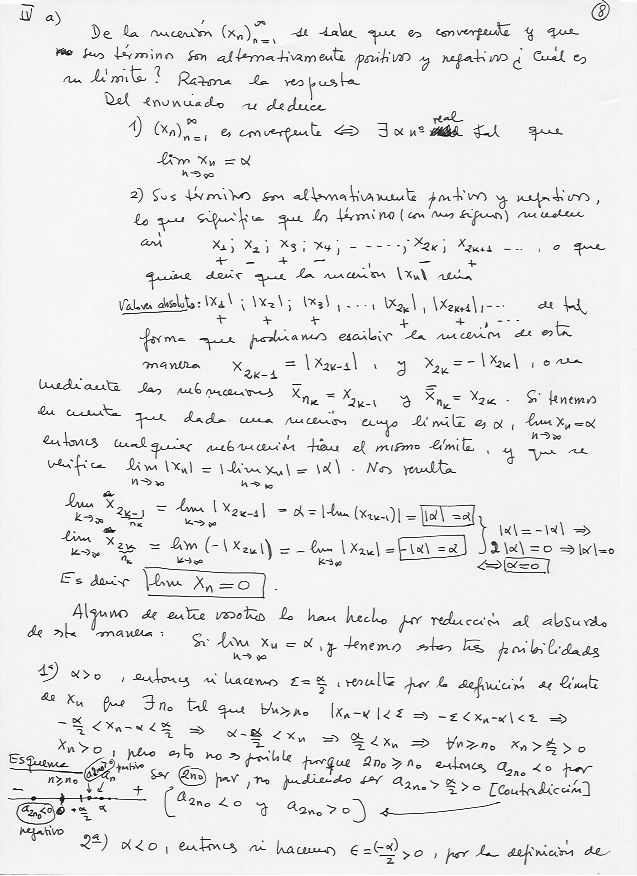 IV a) ⑧
De la sucesión (xₙ)ₙ₌₁^∞ se sabe que es convergente y que
sus términos son alternativamente positivos y negativos ¿Cuál es
su límite? Razona la respuesta
Del enunciado se deduce
1) (xₙ)ₙ₌₁^∞ es convergente ⇔ ∃ α nº real tal que
lim xₙ = α
n→∞
2) Sus términos son alternativamente positivos y negativos,
lo que significa que los término (con sus signos) suceden
así x₁; x₂; x₃; x₄; - - - - -; x₂ₖ; x₂ₖ₊₁ - - - , o que
+ − + − − +
quiere decir que la sucesión |xₙ| sería
Valores absolutos: |x₁|; |x₂|; |x₃|, ..., |x₂ₖ|, |x₂ₖ₊₁|, ... de tal
+ + + + +
forma que podriamos escribir la sucesión de esta
manera x₂ₖ₋₁ = |x₂ₖ₋₁|, y x₂ₖ = -|x₂ₖ|, o sea
mediante las subsucesiones x̄ₙₖ = x₂ₖ₋₁ y x̿ₙₖ = x₂ₖ. Si tenemos
en cuenta que dada una sucesión cuyo límite es α, lim xₙ = α
n→∞
entonces cualquier subsucesión tiene el mismo límite, y que se
verifica lim |xₙ| = |lim xₙ| = |α|. Nos resulta
n→∞ n→∞
lim x₂ₖ₋₁ = lim |x₂ₖ₋₁| = α = |lim (x₂ₖ₋₁)| = |α| = α
k→∞ nₖ k→∞
lim x₂ₖ = lim (-|x₂ₖ|) = - lim |x₂ₖ| = -|α| = α } |α| = -|α| ⇒ 2|α| = 0 ⇒ |α| = 0
k→∞ nₖ k→∞ k→∞ ⇔ α = 0
Es decir lim xₙ = 0.
Algunos de entre vosotros lo han hecho por reducción al absurdo
de esta manera: Si lim xₙ = α, y tenemos estas tres posibilidades
n→∞
1ª) α > 0, entonces si hacemos ε = α/2, resulta por la definición de límite
de xₙ que ∃ n₀ tal que ∀n ≥ n₀ |xₙ-α| < ε ⇒ -ε < xₙ-α < ε ⇒
-α/2 < xₙ-α < α/2 ⇒ α-α/2 < xₙ ⇒ α/2 < xₙ ⇒ ∀n ≥ n₀ xₙ > α/2 > 0
xₙ > 0, pero esto no es posible porque 2n₀ ≥ n₀ entonces a₂ₙ₀ < 0 por
Esquema n ≥ n₀ a₂ₙ₀ > 0 positivo aₙ
ser 2n₀ par, no pudiendo ser a₂ₙ₀ > α/2 > 0 [Contradicción]
− 0 α/2 α +
a₂ₙ₀ < 0 [a₂ₙ₀ < 0 y a₂ₙ₀ > 0]
negativo
2ª) α < 0, entonces si hacemos ε = (-α)/2 > 0, por la definición de